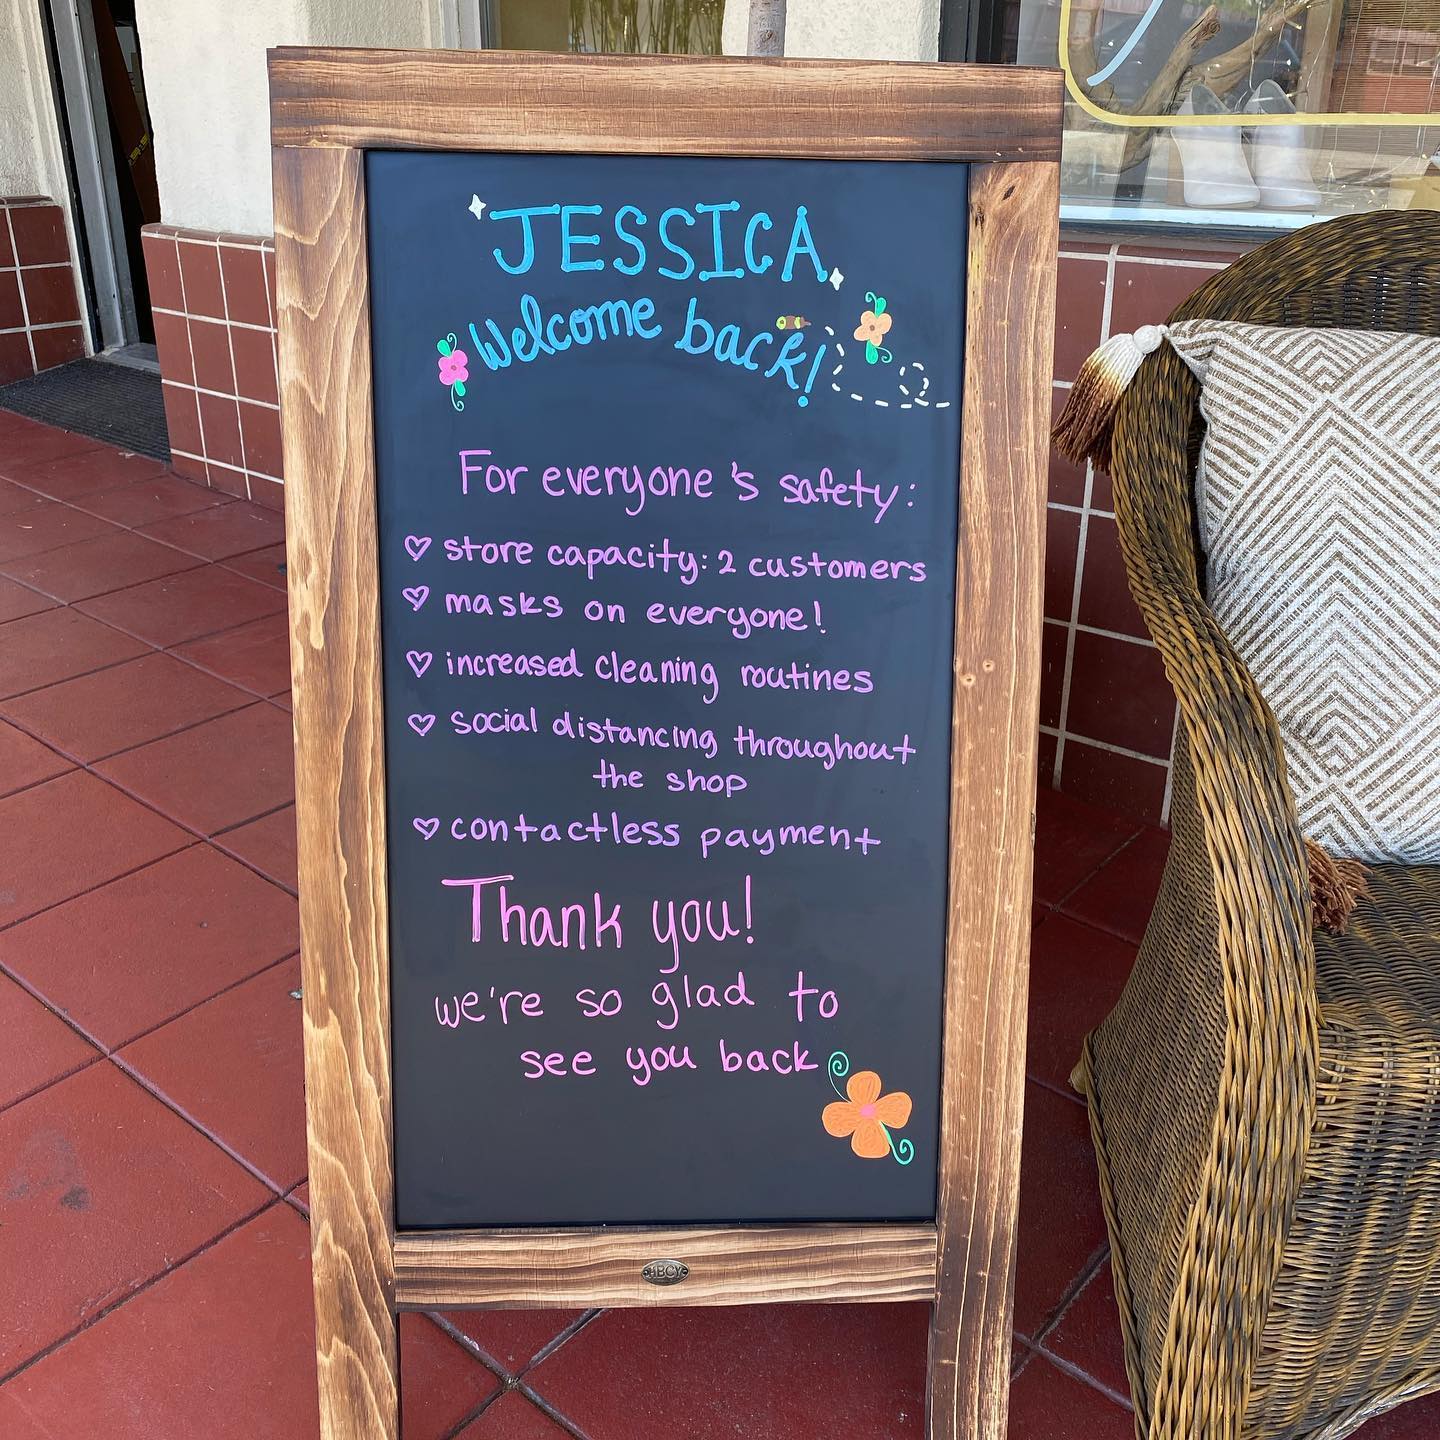 JESSICA
Welcome back!
For everyone's safety:
♡ store capacity: 2 customers
♡ masks on everyone!
♡ increased cleaning routines
♡ social distancing throughout
the shop
♡ contactless payment
Thank you!
we're so glad to
see you back
HBCY